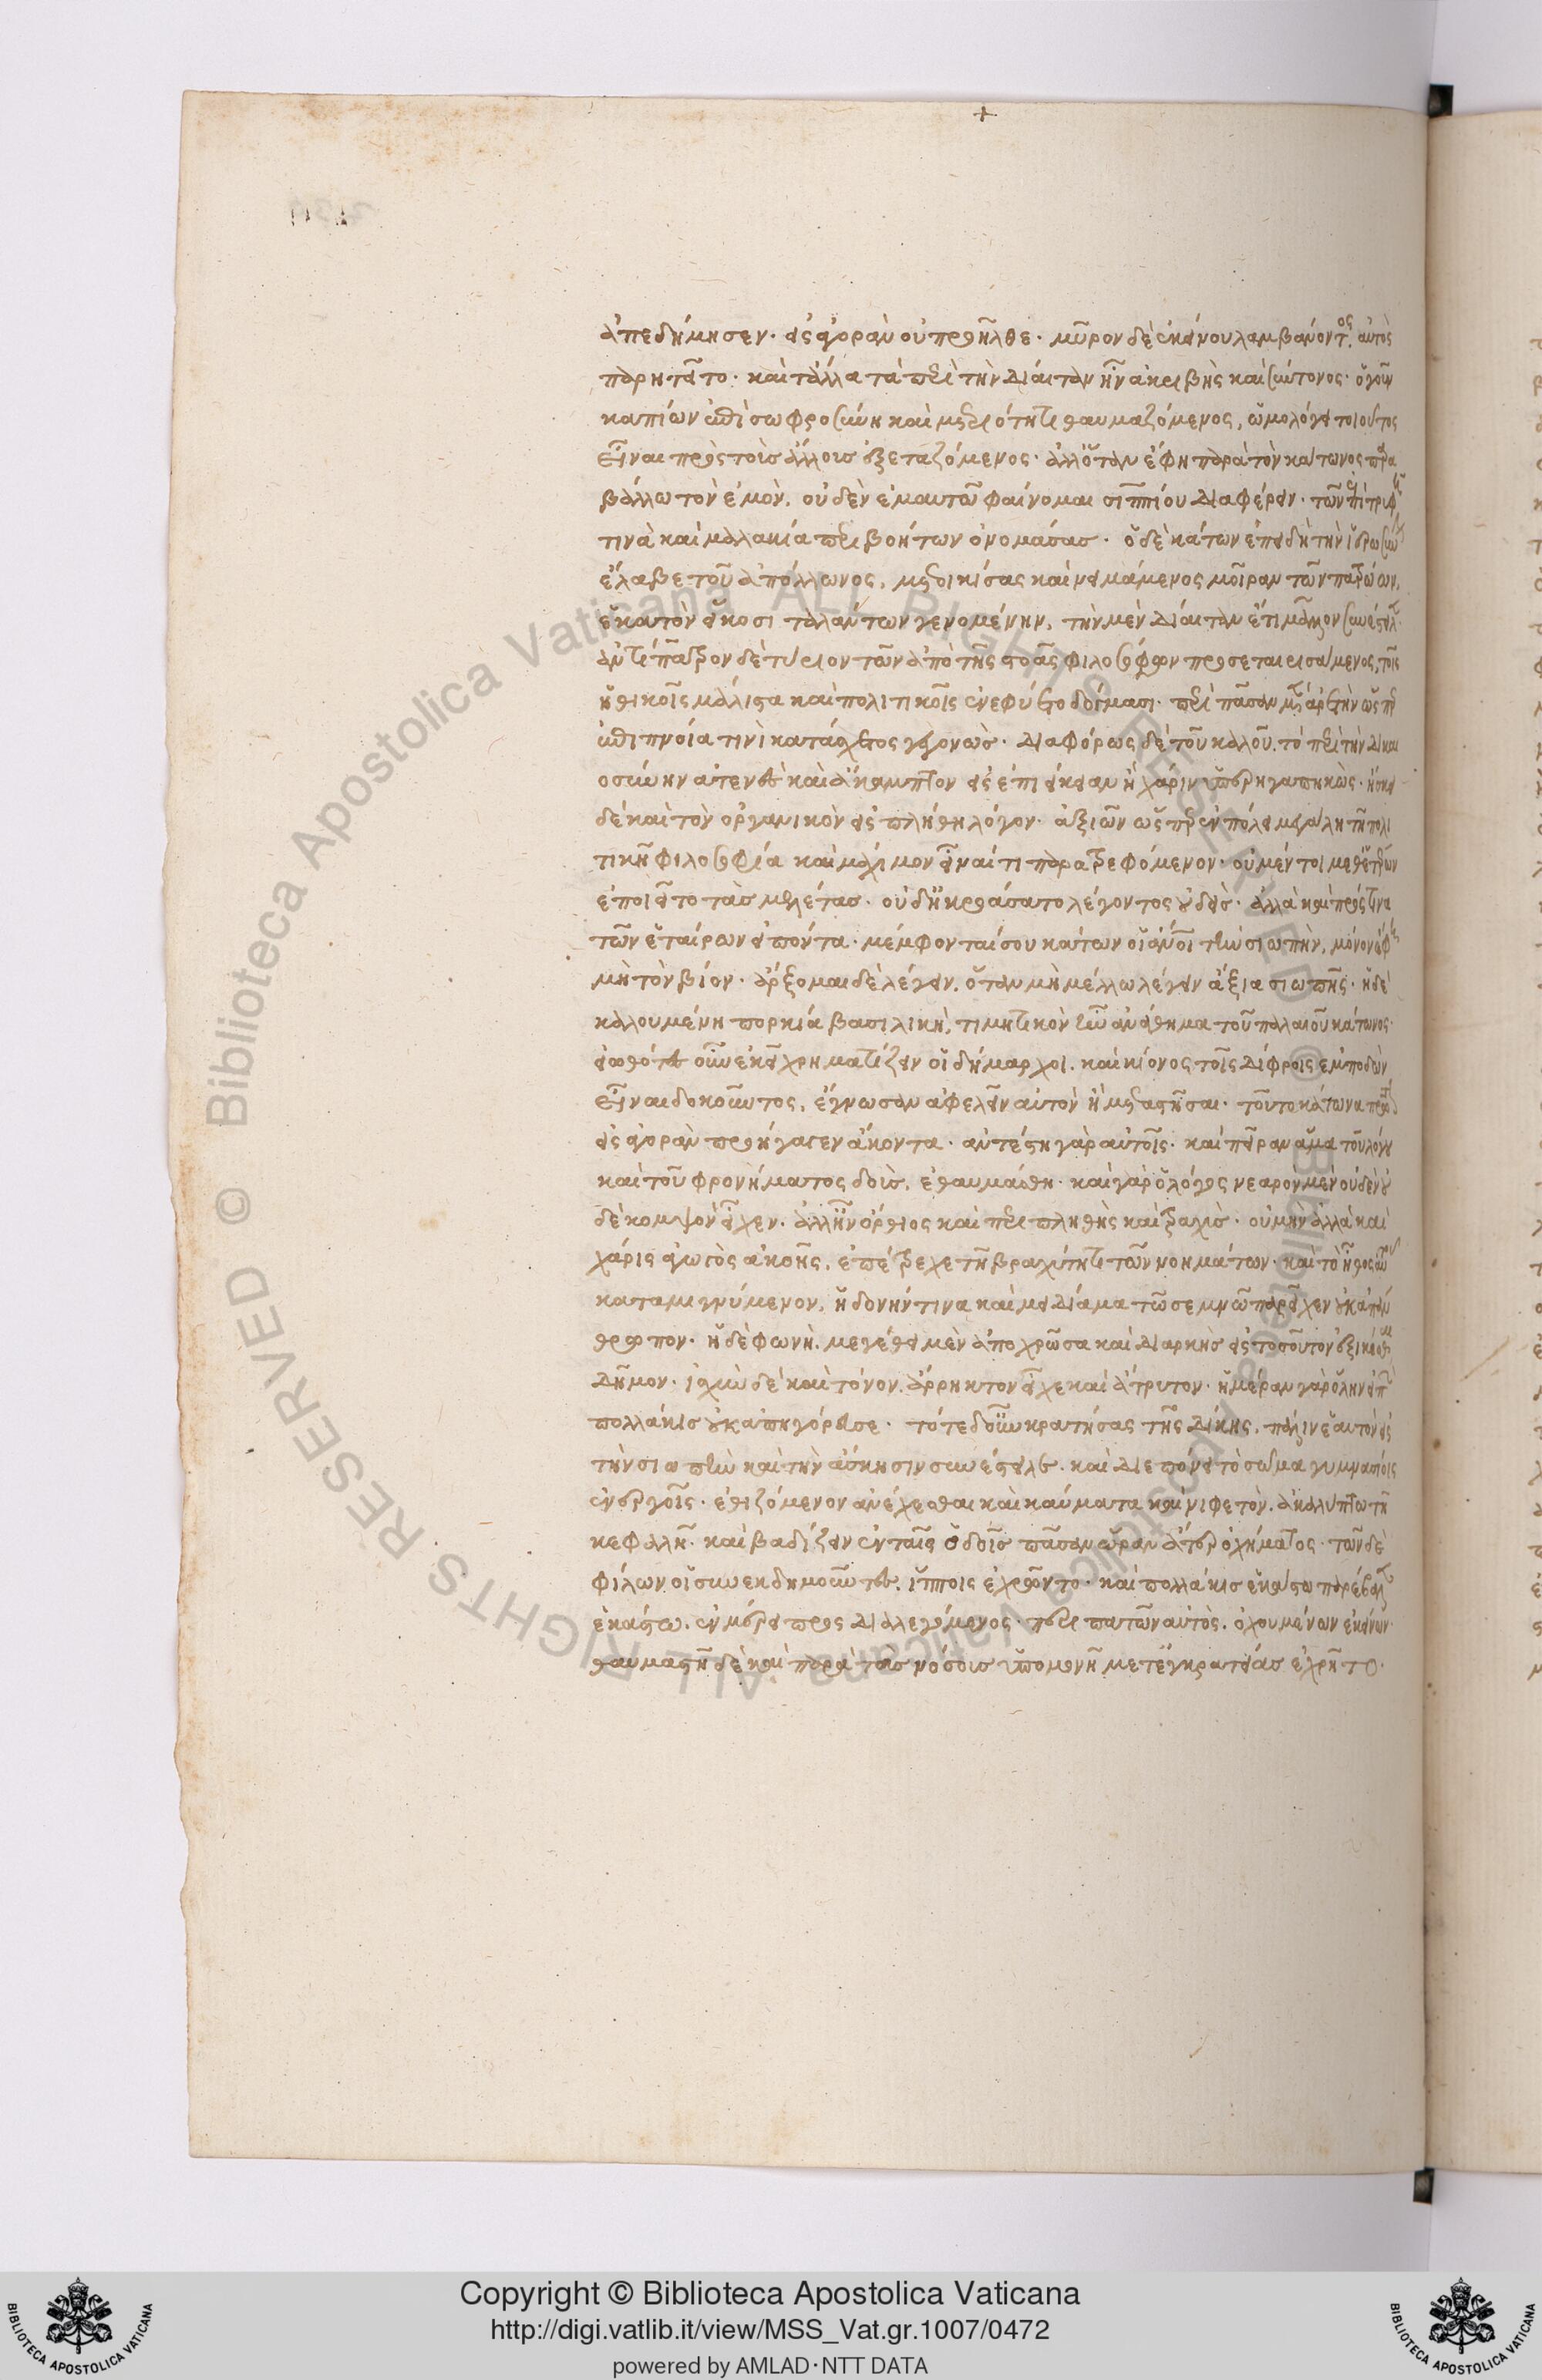 ἀπεδήμησεν· εἰς ἀγορὰν οὐ προῆλθε· μῦρον δὲ ἐκείνου λαμβάνοντος, αὐτὸς
παρητεῖτο· καὶ τἆλλα τὰ περὶ τὴν δίαιταν ἦν ἀκριβὴς καὶ σύντονος· ὁ γοῦν
καπίων ἐπὶ σωφροσύνη καὶ μετριότητι θαυμαζόμενος, ὡμολόγει τοιοῦτος
εἶναι πρὸς τοὺς ἄλλους ἐξεταζόμενος· ἀλλ' ὅταν ἔφη παρὰ τὸν κάτωνος παρα
βάλλω τὸν ἐμὸν, οὐδὲν ἐμαυτῶ φαίνομαι σιππίου διαφέρειν· τῶν ἐπὶ τρυφῆ
τινὰ καὶ μαλακία περιβοήτων ὀνομάσας· ὁ δὲ κάτων ἐπειδὴ τὴν ἱερωσύνην
ἔλαβε τοῦ ἀπόλλωνος, μετοικήσας καὶ νειμάμενος μοῖραν τῶν πατρώων,
ἑκατὸν εἴκοσι ταλάντων γενομένην, τὴν μὲν δίαιταν ἔτι μᾶλλον συνέστειλεν
ἀντίπατρον δὲ τύριον τῶν ἀπὸ τῆς στοᾶς φιλόσοφον προσεταιρισάμενος, τοῖς
ἠθικοῖς μάλιστα καὶ πολιτικοῖς ἐνεφύετο δόγμασι· περὶ πᾶσαν μὲν ἀρετὴν ὥσπερ
ἐπιπνοία τινὶ κατάσχετος γεγονὼς· διαφόρως δὲ τοῦ καλοῦ, τὸ περὶ τὴν δικαι
οσύνην ἀτενὲς καὶ ἄκαμπτον εἰς ἐπιείκειαν ἢ χάριν ὑπερηγαπηκὼς· ἤσκει
δὲ καὶ τὸν ὀργανικὸν εἰς πλήθη λόγον· ἀξιῶν ὥσπερ ἐν πόλει μεγάλη τῆ πολι
τικῆ φιλοσοφία καὶ μάχιμον εἶναί τι παρατρεφόμενον· οὐ μέντοι μεθ' ἑτέρων
ἐποιεῖτο τὰς μελέτας· οὐδ' ἠκροάσατο λέγοντος οὐδεὶς· ἀλλὰ καὶ πρός τινα
τῶν ἑταίρων εἰπόντα· μέμφονταί σου κάτων οἱ ἄνθρωποι τὴν σιωπὴν, μόνον ἔφη
μὴ τὸν βίον· ἄρξομαι δὲ λέγειν, ὅταν μὴ μέλλω λέγειν ἄξια σιωπῆς· ἡ δὲ
καλουμένη πορκία βασιλικὴ, τιμητικὸν ἦν ἀνάθημα τοῦ παλαιοῦ κάτωνος·
εἰωθότες οὖν ἐκεῖ χρηματίζειν οἱ δήμαρχοι, καὶ κίονος τοῖς δίφροις ἐμποδὼν
εἶναι δοκοῦντος, ἔγνωσαν ἀφελεῖν αὐτὸν ἢ μεταστῆσαι· τοῦτο κάτωνα πρῶτον
εἰς ἀγορὰν προήγαγεν ἄκοντα· ἀντέστη γὰρ αὐτοῖς· καὶ πεῖραν ἅμα τοῦ λόγου
καὶ τοῦ φρονήματος δοὺς, ἐθαυμάσθη· καὶ γὰρ ὁ λόγος νεαρὸν μὲν οὐδὲν οὐ
δὲ κομψὸν εἶχεν· ἀλλ' ἦν ὄρθιος καὶ περιπληθὴς καὶ τραχὺς· οὐ μὴν ἀλλὰ καὶ
χάρις ἀγωγὸς ἀκοῆς, ἐπέτρεχε τῆ βραχύτητι τῶν νοημάτων· καὶ τὸ ἦθος αὐτοῦ
καταμιγνύμενον, ἡδονήν τινα καὶ μειδίαμα τῶ σεμνῶ παρεῖχεν οὐκ ἀπάν
θρωπον· ἡ δὲ φωνὴ, μεγέθει μὲν ἀποχρῶσα καὶ διαρκὴς εἰς τοσοῦτον ἐξικέσθαι
δῆμον· ἰσχὺν δὲ καὶ τόνον, ἄρρηκτον εἶχε καὶ ἄτρυτον· ἡμέραν γὰρ ὅλην εἰπὼν
πολλάκις οὐκ ἀπηγόρευσε· τότε δ' οὖν κρατήσας τῆς δίκης, πάλιν ἑαυτὸν εἰς
τὴν σιωπὴν καὶ τὴν ἄσκησιν συνέστειλε· καὶ διεπόνει τὸ σῶμα γυμνασίοις
ἐνεργοῖς· ἐθιζόμενον ἀνέχεσθαι καὶ καύματα καὶ νιφετὸν, ἀκαλύπτω τῆ
κεφαλῆ· καὶ βαδίζειν ἐν ταῖς ὁδοῖς πᾶσαν ὥραν ἄτερ ὀχήματος· τῶν δὲ
φίλων οἱ συνεκδημοῦντες, ἵπποις ἐχρῶντο· καὶ πολλάκις ἑκάστω παρέβαλλεν
ἑκάστω, ἐν μέρει προσδιαλεγόμενος· περιπατῶν αὐτὸς, ὀχουμένων ἐκείνων·
θαυμαστῆ δὲ καὶ παρὰ τὰς νόσους ὑπομονῆ μετ' ἐγκρατείας ἐχρῆτο·
Copyright © Biblioteca Apostolica Vaticana
http://digi.vatlib.it/view/MSS_Vat.gr.1007/0472
powered by AMLAD·NTT DATA
BIBLIOTECA APOSTOLICA VATICANA
BIBLIOTECA APOSTOLICA VATICANA
© Biblioteca Apostolica Vaticana ALL RIGHTS RESERVED
© Biblioteca Apostolica Vaticana ALL RIGHTS RESERVED